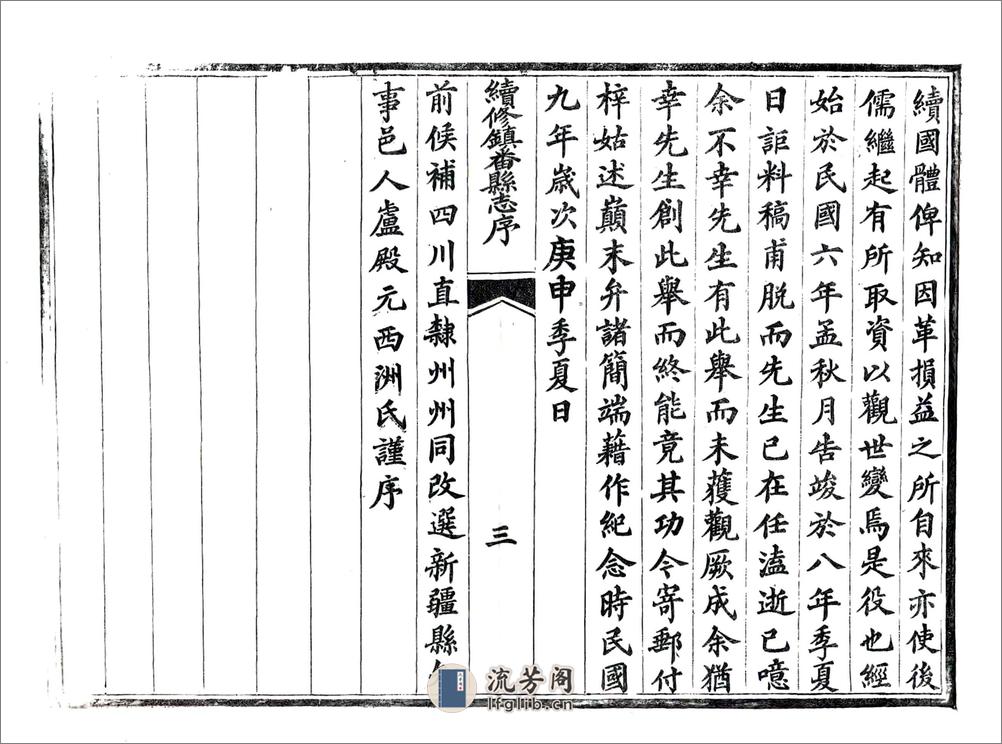 續國體俾知因革損益之所自來亦使後
儒繼起有所取資以觀世變焉是役也經
始於民國六年孟秋月告竣於八年季夏
日詎料稿甫脫而先生已在任溘逝已噫
余不幸先生有此舉而未獲觀厥成余猶
幸先生創此舉而終能竟其功今寄郵付
梓姑述巔末弁諸簡端藉作紀念時民國
九年歲次庚申季夏日
續修鎮番縣志序
三
前候補四川直隸州州同改選新疆縣
事邑人盧殿元西洲氏謹序
流芳阁
lfglib.cn